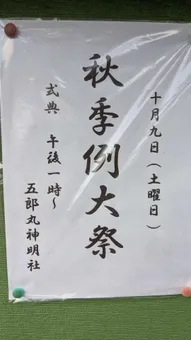 十月九日(土曜日)
秋季例大祭
式典 午後一時~
五郎丸神明社